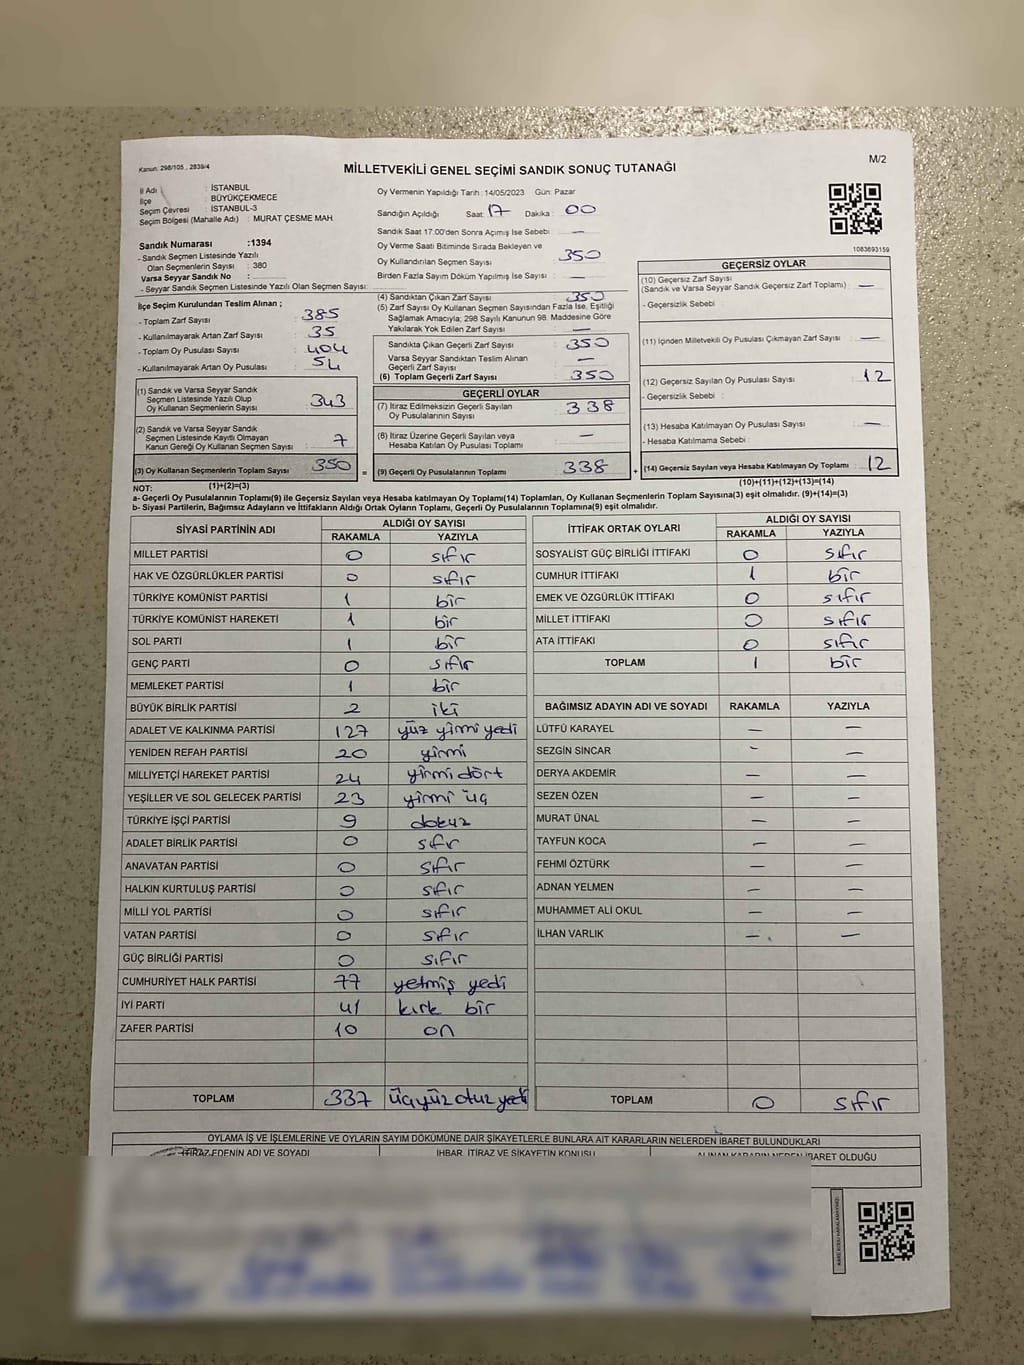 Kanun: 298/105 , 2839/4
MİLLETVEKİLİ GENEL SEÇİMİ SANDIK SONUÇ TUTANAĞI
M/2
İl Adı : İSTANBUL
İlçe : BÜYÜKÇEKMECE
Seçim Çevresi : İSTANBUL-3
Seçim Bölgesi (Mahalle Adı) : MURAT ÇESME MAH.
Sandık Numarası :1394
- Sandık Seçmen Listesinde Yazılı
Olan Seçmenlerin Sayısı : 380
Varsa Seyyar Sandık No :
- Seyyar Sandık Seçmen Listesinde Yazılı Olan Seçmen Sayısı:
Oy Vermenin Yapıldığı Tarih : 14/05/2023 Gün: Pazar
Sandığın Açıldığı Saat: 17 Dakika : 00
Sandık Saat 17.00'den Sonra Açımış Ise Sebebi : —
Oy Verme Saati Bitiminde Sırada Bekleyen ve
Oy Kullandırılan Seçmen Sayısı : 350
Birden Fazla Sayım Döküm Yapılmış İse Sayısı : —
1083693159
İlçe Seçim Kurulundan Teslim Alınan ;
- Toplam Zarf Sayısı : 385
- Kullanılmayarak Artan Zarf Sayısı : 35
- Toplam Oy Pusulası Sayısı : 404
- Kullanılmayarak Artan Oy Pusulası : 54
(1) Sandık ve Varsa Seyyar Sandık
Seçmen Listesinde Yazılı Olup
Oy Kullanan Seçmenlerin Sayısı : 343
(2) Sandık ve Varsa Seyyar Sandık
Seçmen Listesinde Kayıtlı Olmayan
Kanun Gereği Oy Kullanan Seçmen Sayısı : 7
(3) Oy Kullanan Seçmenlerin Toplam Sayısı : 350 =
(1)+(2)=(3)
(4) Sandıktan Çıkan Zarf Sayısı : 350
(5) Zarf Sayısı Oy Kullanan Seçmen Sayısından Fazla Ise, Eşitliği
Sağlamak Amacıyla; 298 Sayılı Kanunun 98. Maddesine Göre
Yakılarak Yok Edilen Zarf Sayısı : —
Sandıkta Çıkan Geçerli Zarf Sayısı : 350
Varsa Seyyar Sandıktan Teslim Alınan
Geçerli Zarf Sayısı : —
(6) Toplam Geçerli Zarf Sayısı : 350
GEÇERLİ OYLAR
(7) İtiraz Edilmeksizin Geçerli Sayılan
Oy Pusulalarının Sayısı : 338
(8) İtiraz Üzerine Geçerli Sayılan veya
Hesaba Katılan Oy Pusulası Toplamı : —
(9) Geçerli Oy Pusulalarının Toplamı : 338 +
GEÇERSİZ OYLAR
(10) Geçersiz Zarf Sayısı
(Sandık ve Varsa Seyyar Sandık Geçersiz Zarf Toplamı) : —
- Geçersizlik Sebebi :
(11) İçinden Milletvekili Oy Pusulası Çıkmayan Zarf Sayısı : —
(12) Geçersiz Sayılan Oy Pusulası Sayısı : 12
- Geçersizlik Sebebi :
(13) Hesaba Katılmayan Oy Pusulası Sayısı : —
- Hesaba Katılmama Sebebi :
(14) Geçersiz Sayılan veya Hesaba Katılmayan Oy Toplamı : 12
(10)+(11)+(12)+(13)=(14)
NOT:
a- Geçerli Oy Pusulalarının Toplamı(9) ile Geçersiz Sayılan veya Hesaba katılmayan Oy Toplamı(14) Toplamları, Oy Kullanan Seçmenlerin Toplam Sayısına(3) eşit olmalıdır. (9)+(14)=(3)
b- Siyasi Partilerin, Bağımsız Adayların ve İttifakların Aldığı Ortak Oyların Toplamı, Geçerli Oy Pusulalarının Toplamına(9) eşit olmalıdır.
SİYASİ PARTİNİN ADI ALDIĞI OY SAYISI
RAKAMLA YAZIYLA
MİLLET PARTİSİ 0 sıfır
HAK VE ÖZGÜRLÜKLER PARTİSİ 0 sıfır
TÜRKİYE KOMÜNİST PARTİSİ 1 bir
TÜRKİYE KOMÜNİST HAREKETİ 1 bir
SOL PARTİ 1 bir
GENÇ PARTİ 0 sıfır
MEMLEKET PARTİSİ 1 bir
BÜYÜK BİRLİK PARTİSİ 2 iki
ADALET VE KALKINMA PARTİSİ 127 yüz yirmi yedi
YENİDEN REFAH PARTİSİ 20 yirmi
MİLLİYETÇİ HAREKET PARTİSİ 24 yirmi dört
YEŞİLLER VE SOL GELECEK PARTİSİ 23 yirmi üç
TÜRKİYE İŞÇİ PARTİSİ 9 dokuz
ADALET BİRLİK PARTİSİ 0 sıfır
ANAVATAN PARTİSİ 0 sıfır
HALKIN KURTULUŞ PARTİSİ 0 sıfır
MİLLİ YOL PARTİSİ 0 sıfır
VATAN PARTİSİ 0 sıfır
GÜÇ BİRLİĞİ PARTİSİ 0 sıfır
CUMHURİYET HALK PARTİSİ 77 yetmiş yedi
İYİ PARTİ 41 kırk bir
ZAFER PARTİSİ 10 on
TOPLAM 337 üçyüz otuz yedi
İTTİFAK ORTAK OYLARI ALDIĞI OY SAYISI
RAKAMLA YAZIYLA
SOSYALIST GÜÇ BİRLİĞİ İTTİFAKI 0 sıfır
CUMHUR İTTİFAKI 1 bir
EMEK VE ÖZGÜRLÜK İTTİFAKI 0 sıfır
MİLLET İTTİFAKI 0 sıfır
ATA İTTİFAKI 0 sıfır
TOPLAM 1 bir
BAĞIMSIZ ADAYIN ADI VE SOYADI RAKAMLA YAZIYLA
LÜTFÜ KARAYEL — —
SEZGİN SİNCAR - —
DERYA AKDEMİR — —
SEZEN ÖZEN — —
MURAT ÜNAL — —
TAYFUN KOCA — —
FEHMİ ÖZTÜRK — —
ADNAN YELMEN — —
MUHAMMET ALİ OKUL — —
İLHAN VARLIK — —
TOPLAM 0 sıfır
OYLAMA İŞ VE İŞLEMLERİNE VE OYLARIN SAYIM DÖKÜMÜNE DAİR ŞİKAYETLERLE BUNLARA AİT KARARLARIN NELERDEN İBARET BULUNDUKLARI
İTİRAZ EDENİN ADI VE SOYADI İHBAR, İTİRAZ VE ŞİKAYETİN KONUSU ALINAN KARARIN NEDEN İBARET OLDUĞU